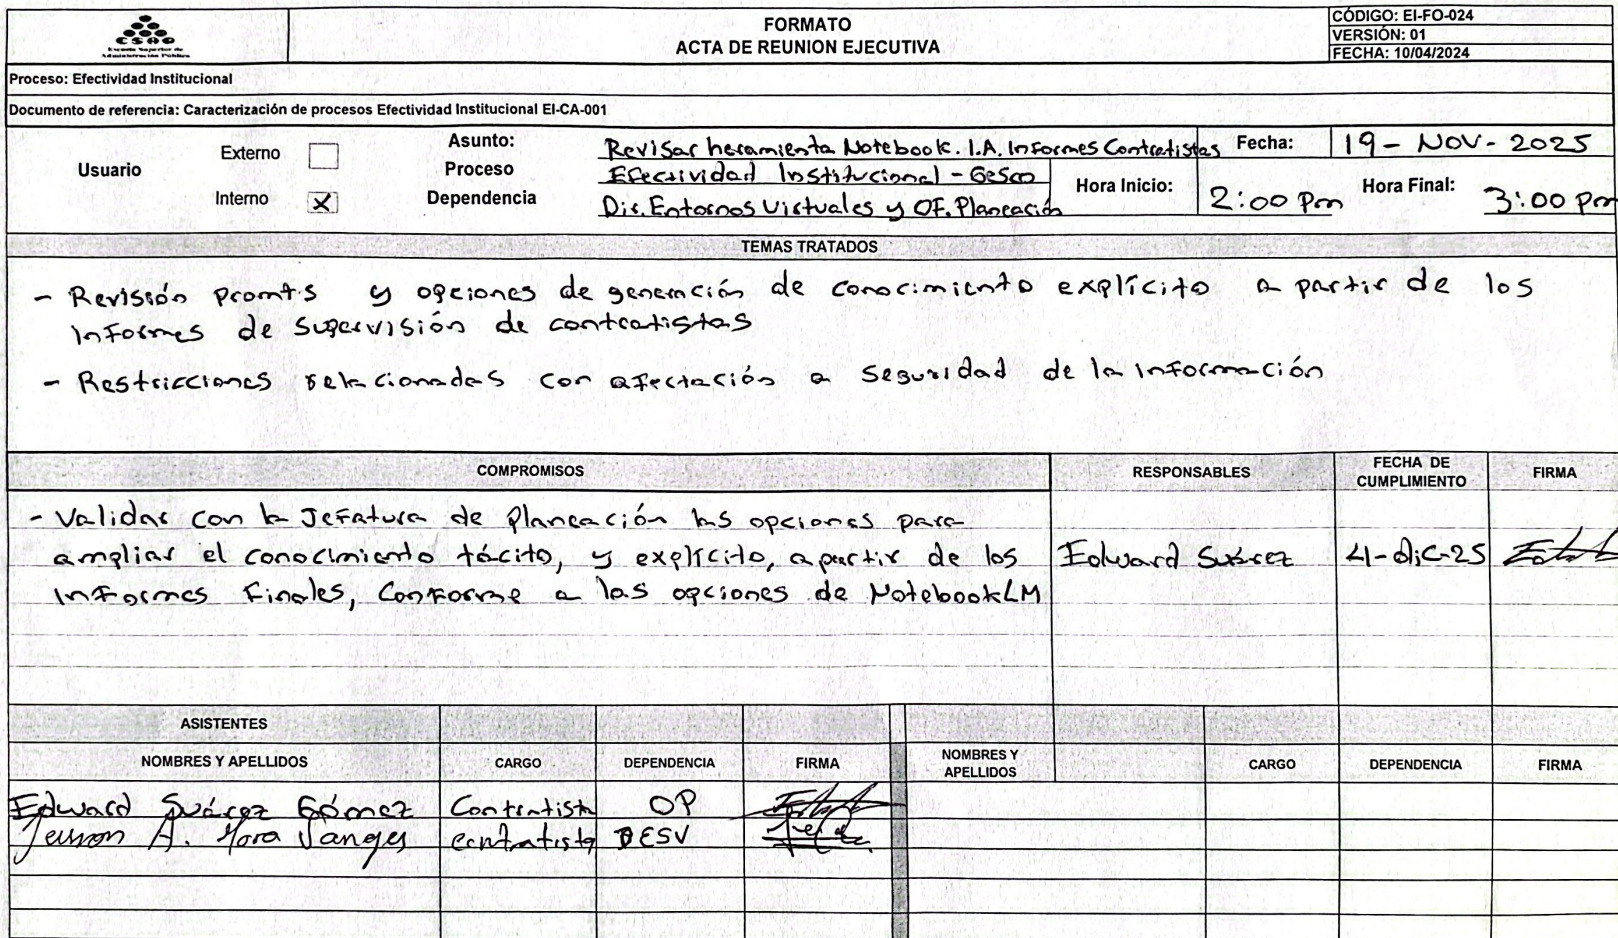 ESAP
Escuela Superior de
Administración Pública
FORMATO
ACTA DE REUNION EJECUTIVA
CÓDIGO: EI-FO-024
VERSIÓN: 01
FECHA: 10/04/2024
Proceso: Efectividad Institucional
Documento de referencia: Caracterización de procesos Efectividad Institucional EI-CA-001
Usuario
Externo
Interno X
Asunto: Revisar heramienta Notebook. I.A. Informes Contratistas
Proceso Efectividad Institucional - Gesco
Dependencia Dir. Entornos Virtuales y OF. Planeación
Fecha: 19 - NOV - 2025
Hora Inicio: 2:00 pm
Hora Final: 3:00 pm
TEMAS TRATADOS
- Revisión promts y opciones de generación de conocimiento explícito a partir de los
informes de supervisión de contratistas
- Restricciones relacionadas con afectación a seguridad de la información
COMPROMISOS RESPONSABLES FECHA DE CUMPLIMIENTO FIRMA
- Validar con la Jefatura de planeación las opciones para
ampliar el conocimiento tácito, y explícito, a partir de los
informes finales, conforme a las opciones de NotebookLM
Edward Suárez 4-dic-25
ASISTENTES
NOMBRES Y APELLIDOS CARGO DEPENDENCIA FIRMA NOMBRES Y APELLIDOS CARGO DEPENDENCIA FIRMA
Edward Suárez Gómez Contratista OP
A. Mora contratista DESV